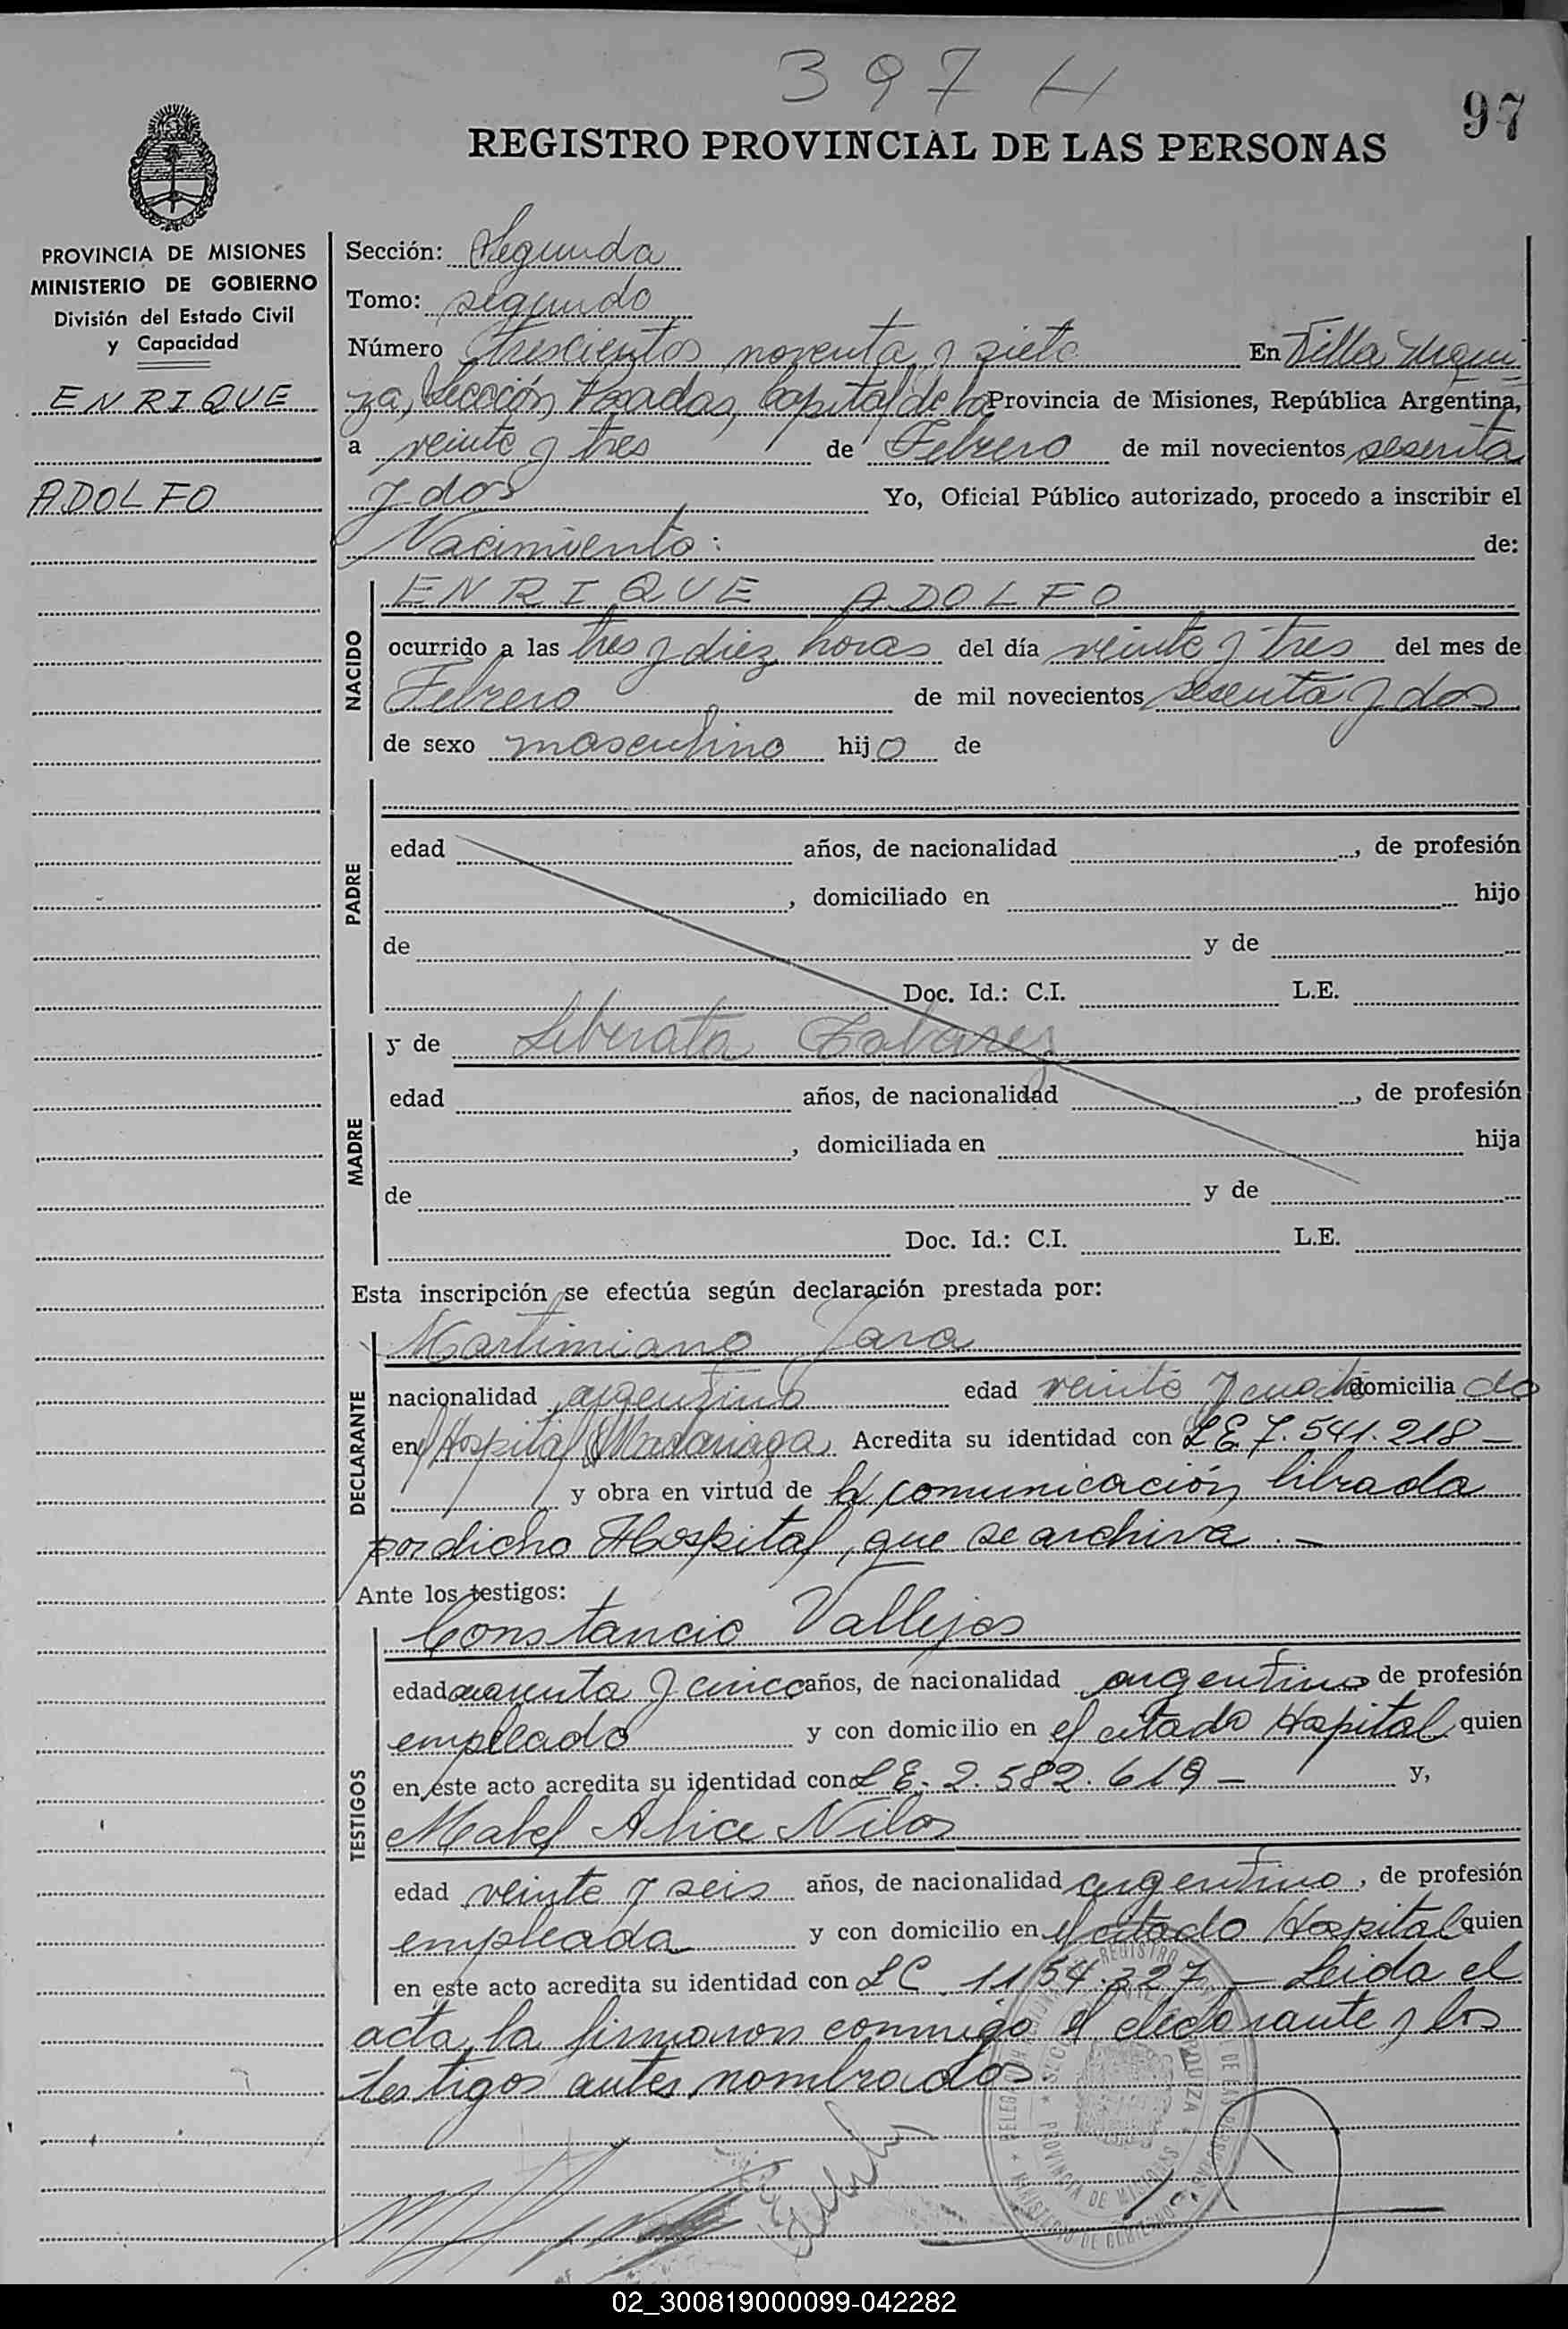 397 H
97
REGISTRO PROVINCIAL DE LAS PERSONAS
PROVINCIA DE MISIONES
MINISTERIO DE GOBIERNO
División del Estado Civil
y Capacidad
ENRIQUE
ADOLFO
Sección: Segunda
Tomo: segundo
Número trescientos noventa y siete En Villa Urqui
za, Sección Posadas, Capital de la Provincia de Misiones, República Argentina,
a veinte y tres de Febrero de mil novecientos sesenta
y dos Yo, Oficial Público autorizado, procedo a inscribir el
Nacimiento: de:
NACIDO
ENRIQUE ADOLFO
ocurrido a las tres y diez horas del día veinte y tres del mes de
Febrero de mil novecientos sesenta y dos
de sexo masculino hijo de
PADRE
edad años, de nacionalidad , de profesión
, domiciliado en hijo
de y de
Doc. Id.: C.I. L.E.
MADRE
y de Liberata Tabarez
edad años, de nacionalidad , de profesión
, domiciliada en hija
de y de
Doc. Id.: C.I. L.E.
Esta inscripción se efectúa según declaración prestada por:
DECLARANTE
Martimiano Jara
nacionalidad argentino edad veinte y cuatro domicilia do
en Hospital Madariaga Acredita su identidad con L.E. 7.541.218 —
y obra en virtud de la comunicación librada
por dicho Hospital, que se archiva. —
Ante los testigos:
TESTIGOS
Constancio Vallejos
edad cuarenta y cinco años, de nacionalidad argentino de profesión
empleado y con domicilio en el citado Hospital quien
en este acto acredita su identidad con L E. 2.582.619 — y,
Mabel Alice Nilos
edad veinte y seis años, de nacionalidad argentino, de profesión
empleada y con domicilio en el citado Hospital quien
en este acto acredita su identidad con L C. 1154.327 — Leida el
acta, la firmaron conmigo el declarante y los
testigos antes nombrados
02_300819000099-042282